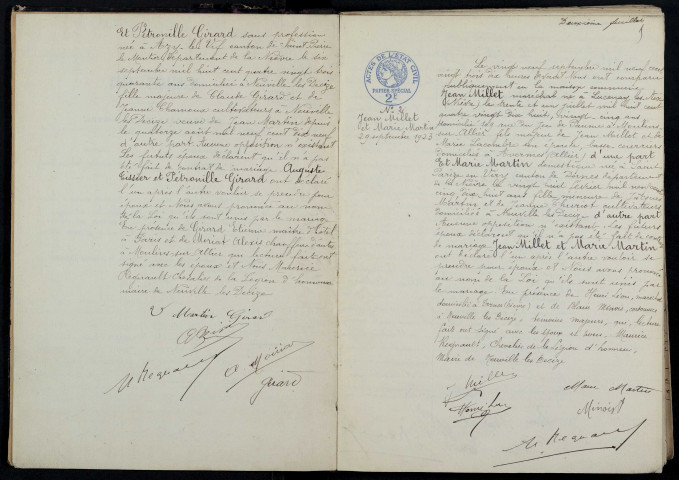 Et Pétronille Girard sans profession
née à Azy le Vif canton de Saint Pierre
le Moutier département de la Nièvre le six
septembre mil huit cent quatre vingt trois
quarante ans domiciliée à Neuville les Decize
fille majeure de Claude Girard et de
Jeanne cultivateurs à Neuville
les Decize veuve de Jean Martin depuis
le quatorze août mil neuf cent dix neuf
d'autre part Aucune opposition n'existant
Les futurs époux déclarent qu'il n'a pas
été fait de contrat de mariage Auguste
et Pétronille Girard ont déclaré
l'un après l'autre vouloir se prendre pour
époux et Nous avons prononcé au nom
de la Loi qu'ils sont unis par le mariage
En présence de Girard Etienne maître d'hôtel
à Paris et de Alexis
à Moulins sur Allier qui lecture faite ont
signé avec les époux et Nous Maurice
Regnault Chevalier de la Légion d'honneur
maire de Neuville les Decize
Vve Martin Girard
Girard
M Regnault
Deuxième feuillet
ACTES DE L'ETAT CIVIL
PAPIER SPECIAL
2
N° 2
Jean Millet
et Marie Martin
29 septembre 1923
Le vingt neuf septembre mil neuf cent
vingt trois dix heures devant Nous ont comparu
publiquement en la maison commune
Jean Millet né à
Nièvre, le trente et un juillet mil huit cent
quatre vingt dix huit, vingt cinq ans,
domicilié à Moulins
sur Allier fils majeur de Jean Millet et de
Marie son épouse,
domiciliés à (Allier) d'une part
Et Marie Martin née à Saint
Parize en Viry canton de Dornes département
de la Nièvre le vingt huit février mil neuf
cent fille mineure de Jacques
Martin et de Jeanne cultivateurs
domiciliés à Neuville les Decize d'autre part
Aucune opposition n'existant Les futurs
époux déclarent qu'il n'a pas été fait de contrat
de mariage Jean Millet et Marie Martin
ont déclaré l'un après l'autre vouloir se
prendre pour époux et Nous avons prononcé
au nom de la Loi qu'ils sont unis par
le mariage. En présence de
domicilié à (Nièvre) et de
à Neuville les Decize, témoins majeurs, qui, lecture
faite ont signé avec les époux et nous Maurice
Regnault, Chevalier de la Légion d'honneur,
Maire de Neuville les Decize
Millet
Marie Martin
M Regnault